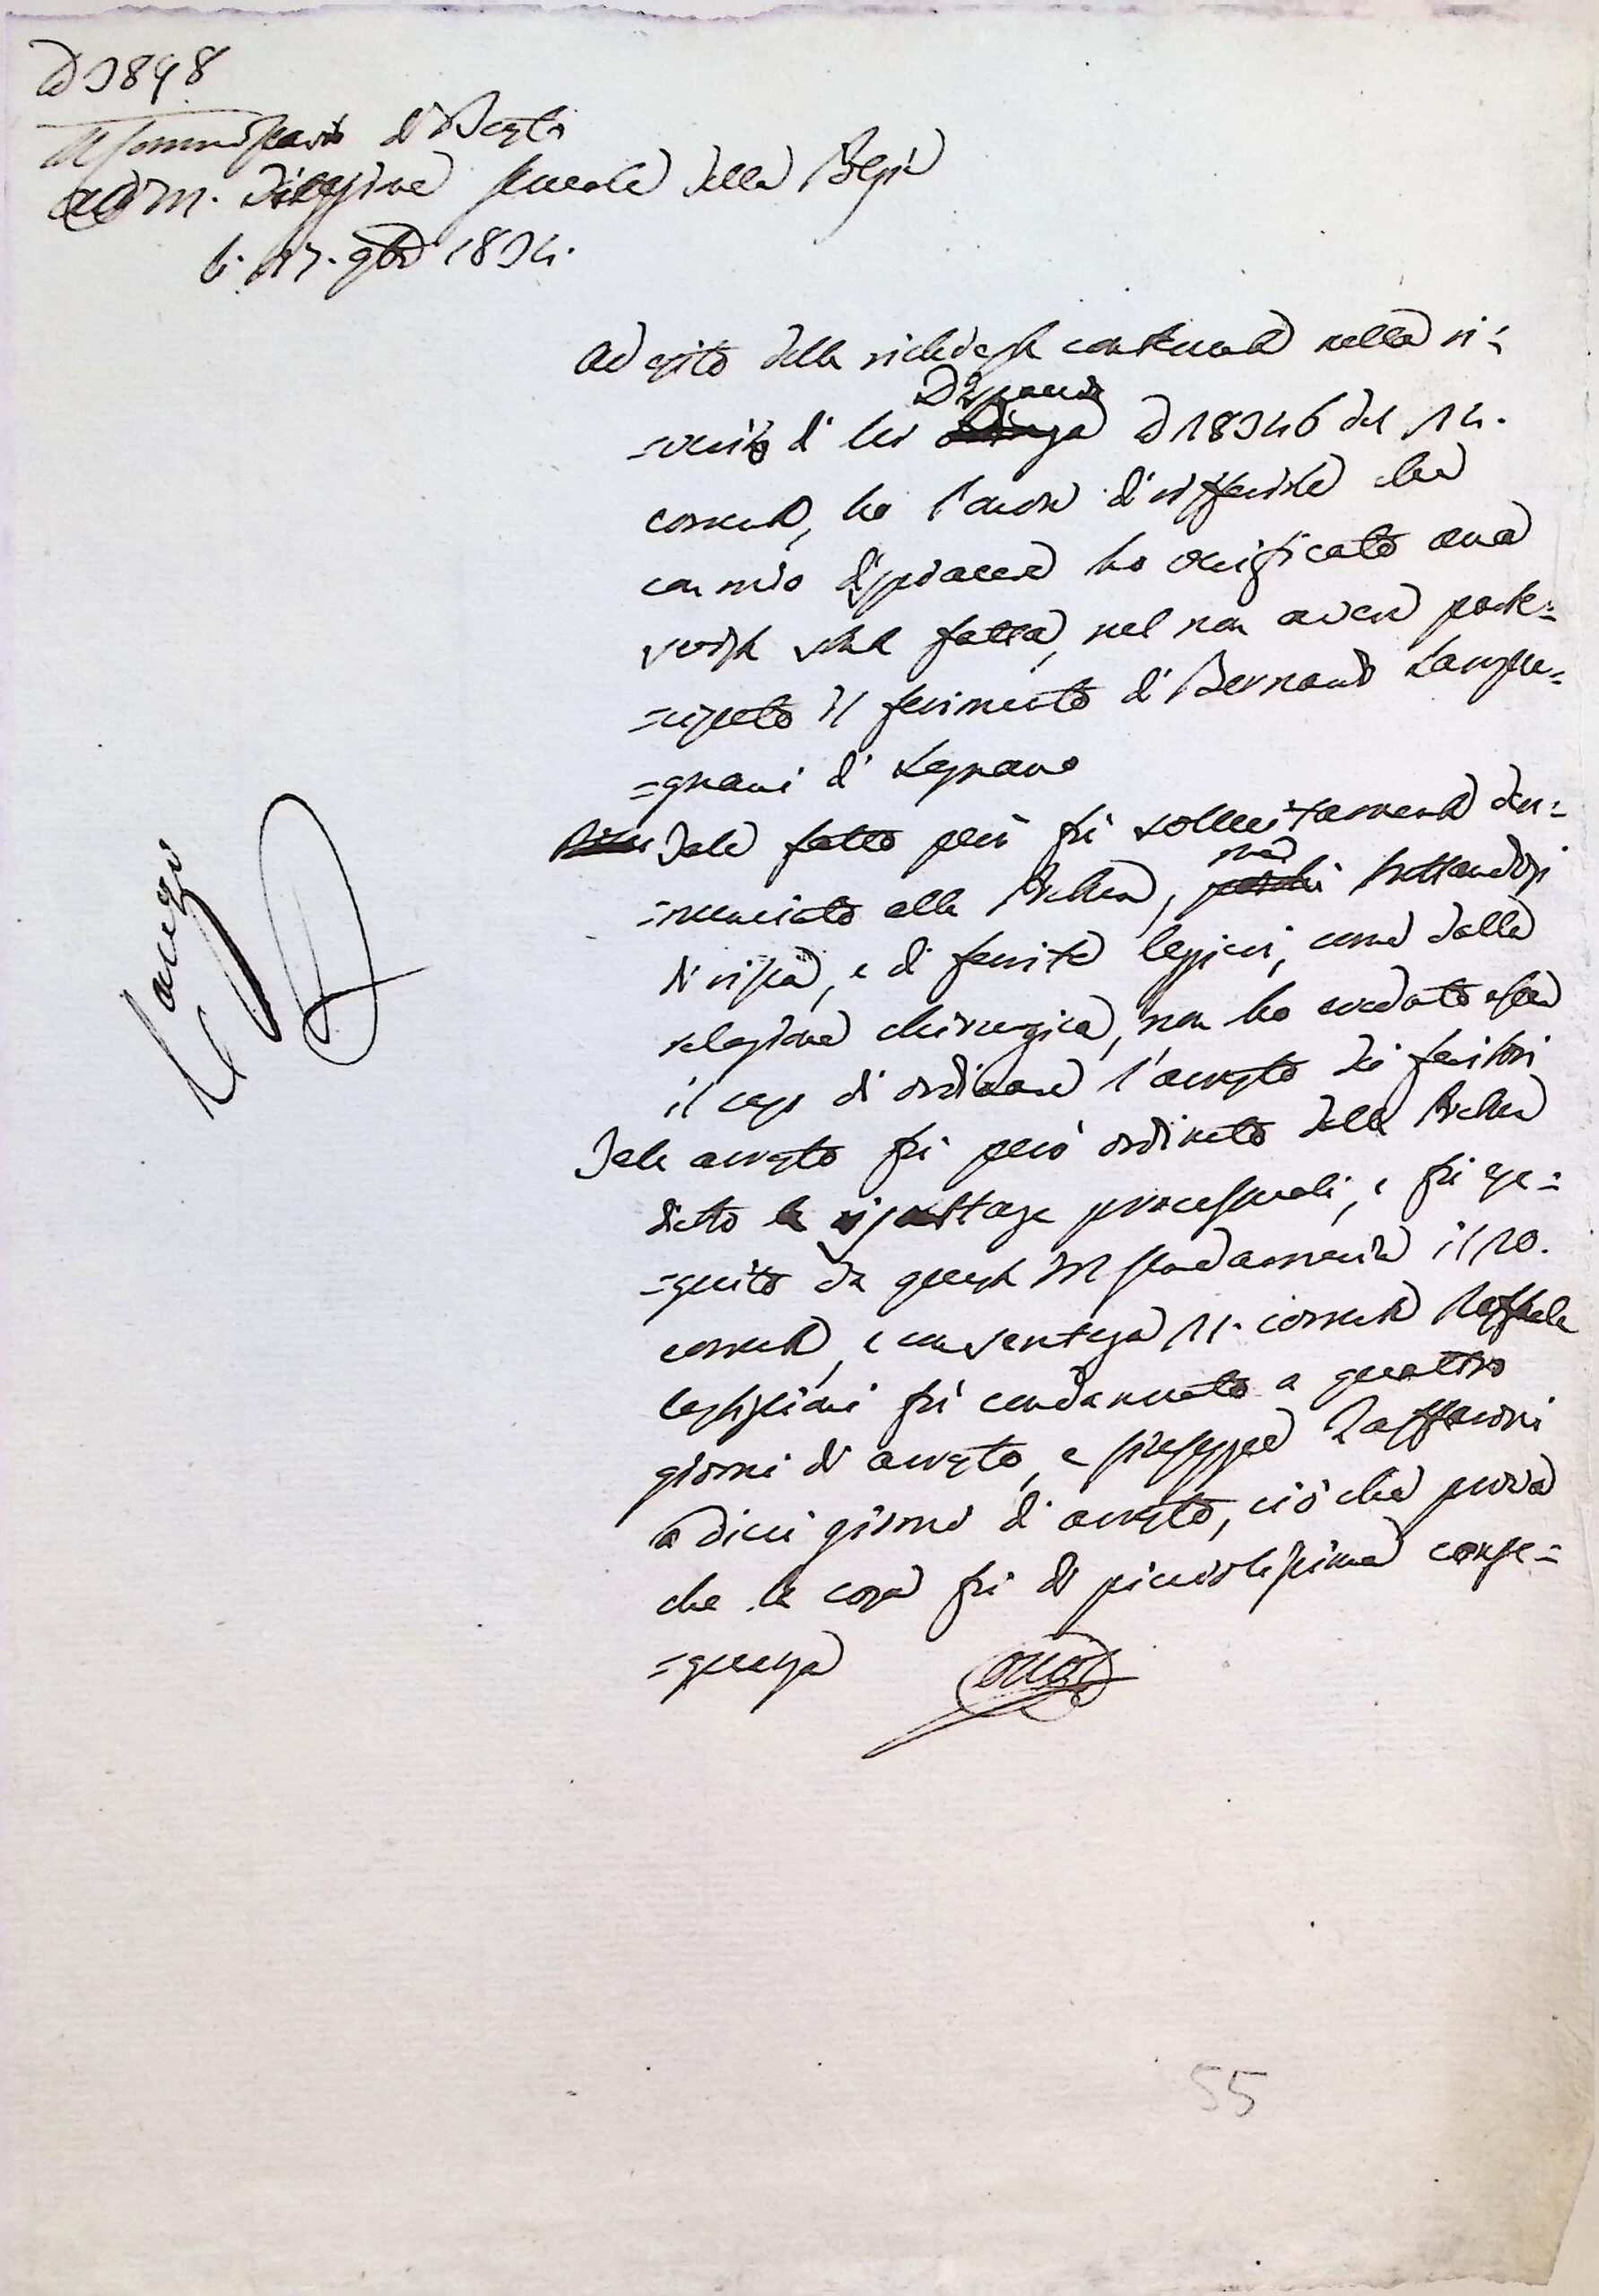 3898
Il Commissario di
M. Direzione Generale della
li 17. 9bre 1834.
Ad esito della richiesta contenuta nella ri=
Dispaccio
=verito di lei 18346 del 14.
corrente, ho l'onore di rifferirle che
con mio dispiacere ho verificato una
svista stata fatta, nel non avere parte=
=cipato il ferimento di Bernardo Lampu=
=gnani di Legnano
Tale fatto però fù sollecitamente den=
ma
=nunciato alla Pretura, perchè trattandosi
di rissa, e di ferite leggieri, come dalla
relazione chirurgica, non ho creduto essere
il caso di ordinare l'arresto dei feritori
Tale arresto fù però ordinato dalla Pretura
dietro le risultanze processuali, e fù ese=
=guito da questa Gendarmeria il 10.
corrente, e con sentenza 11. corrente Raffaele
Castiglioni fù condannato a quattro
giorni di arresto, e Giuseppe Zaffaroni
a dieci giorni di arresto, ciò che prova
che la cosa fù di picciolissima conse=
=guenza
55